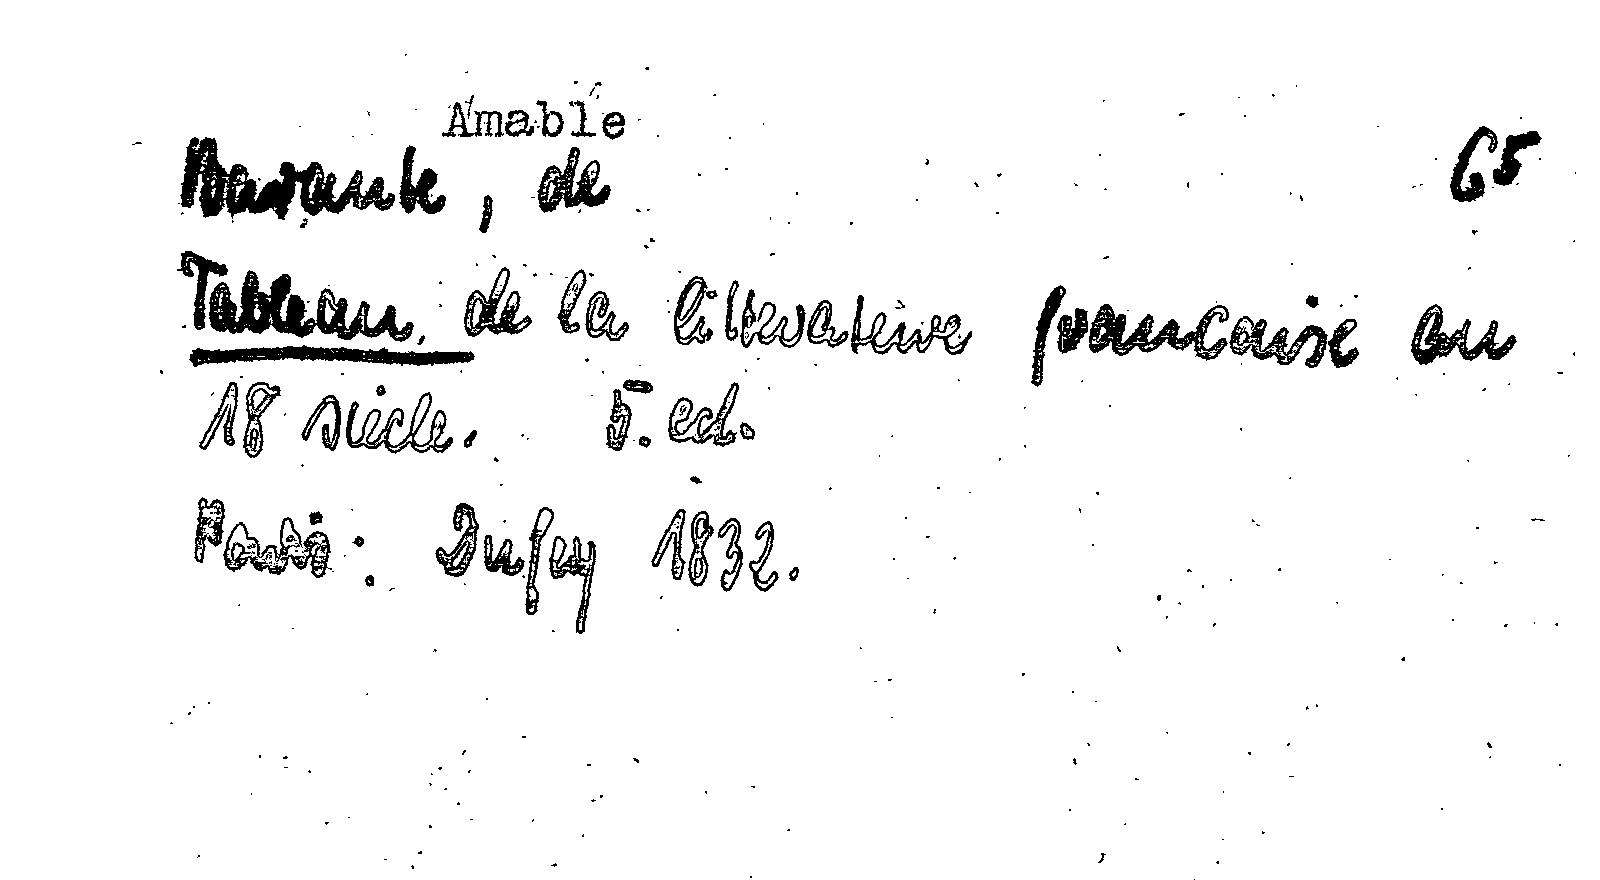 Amable
Barante, de G5
Tableau de la litterature francaise au
18 siècle. 5. ed.
Paris: Dufey 1832.